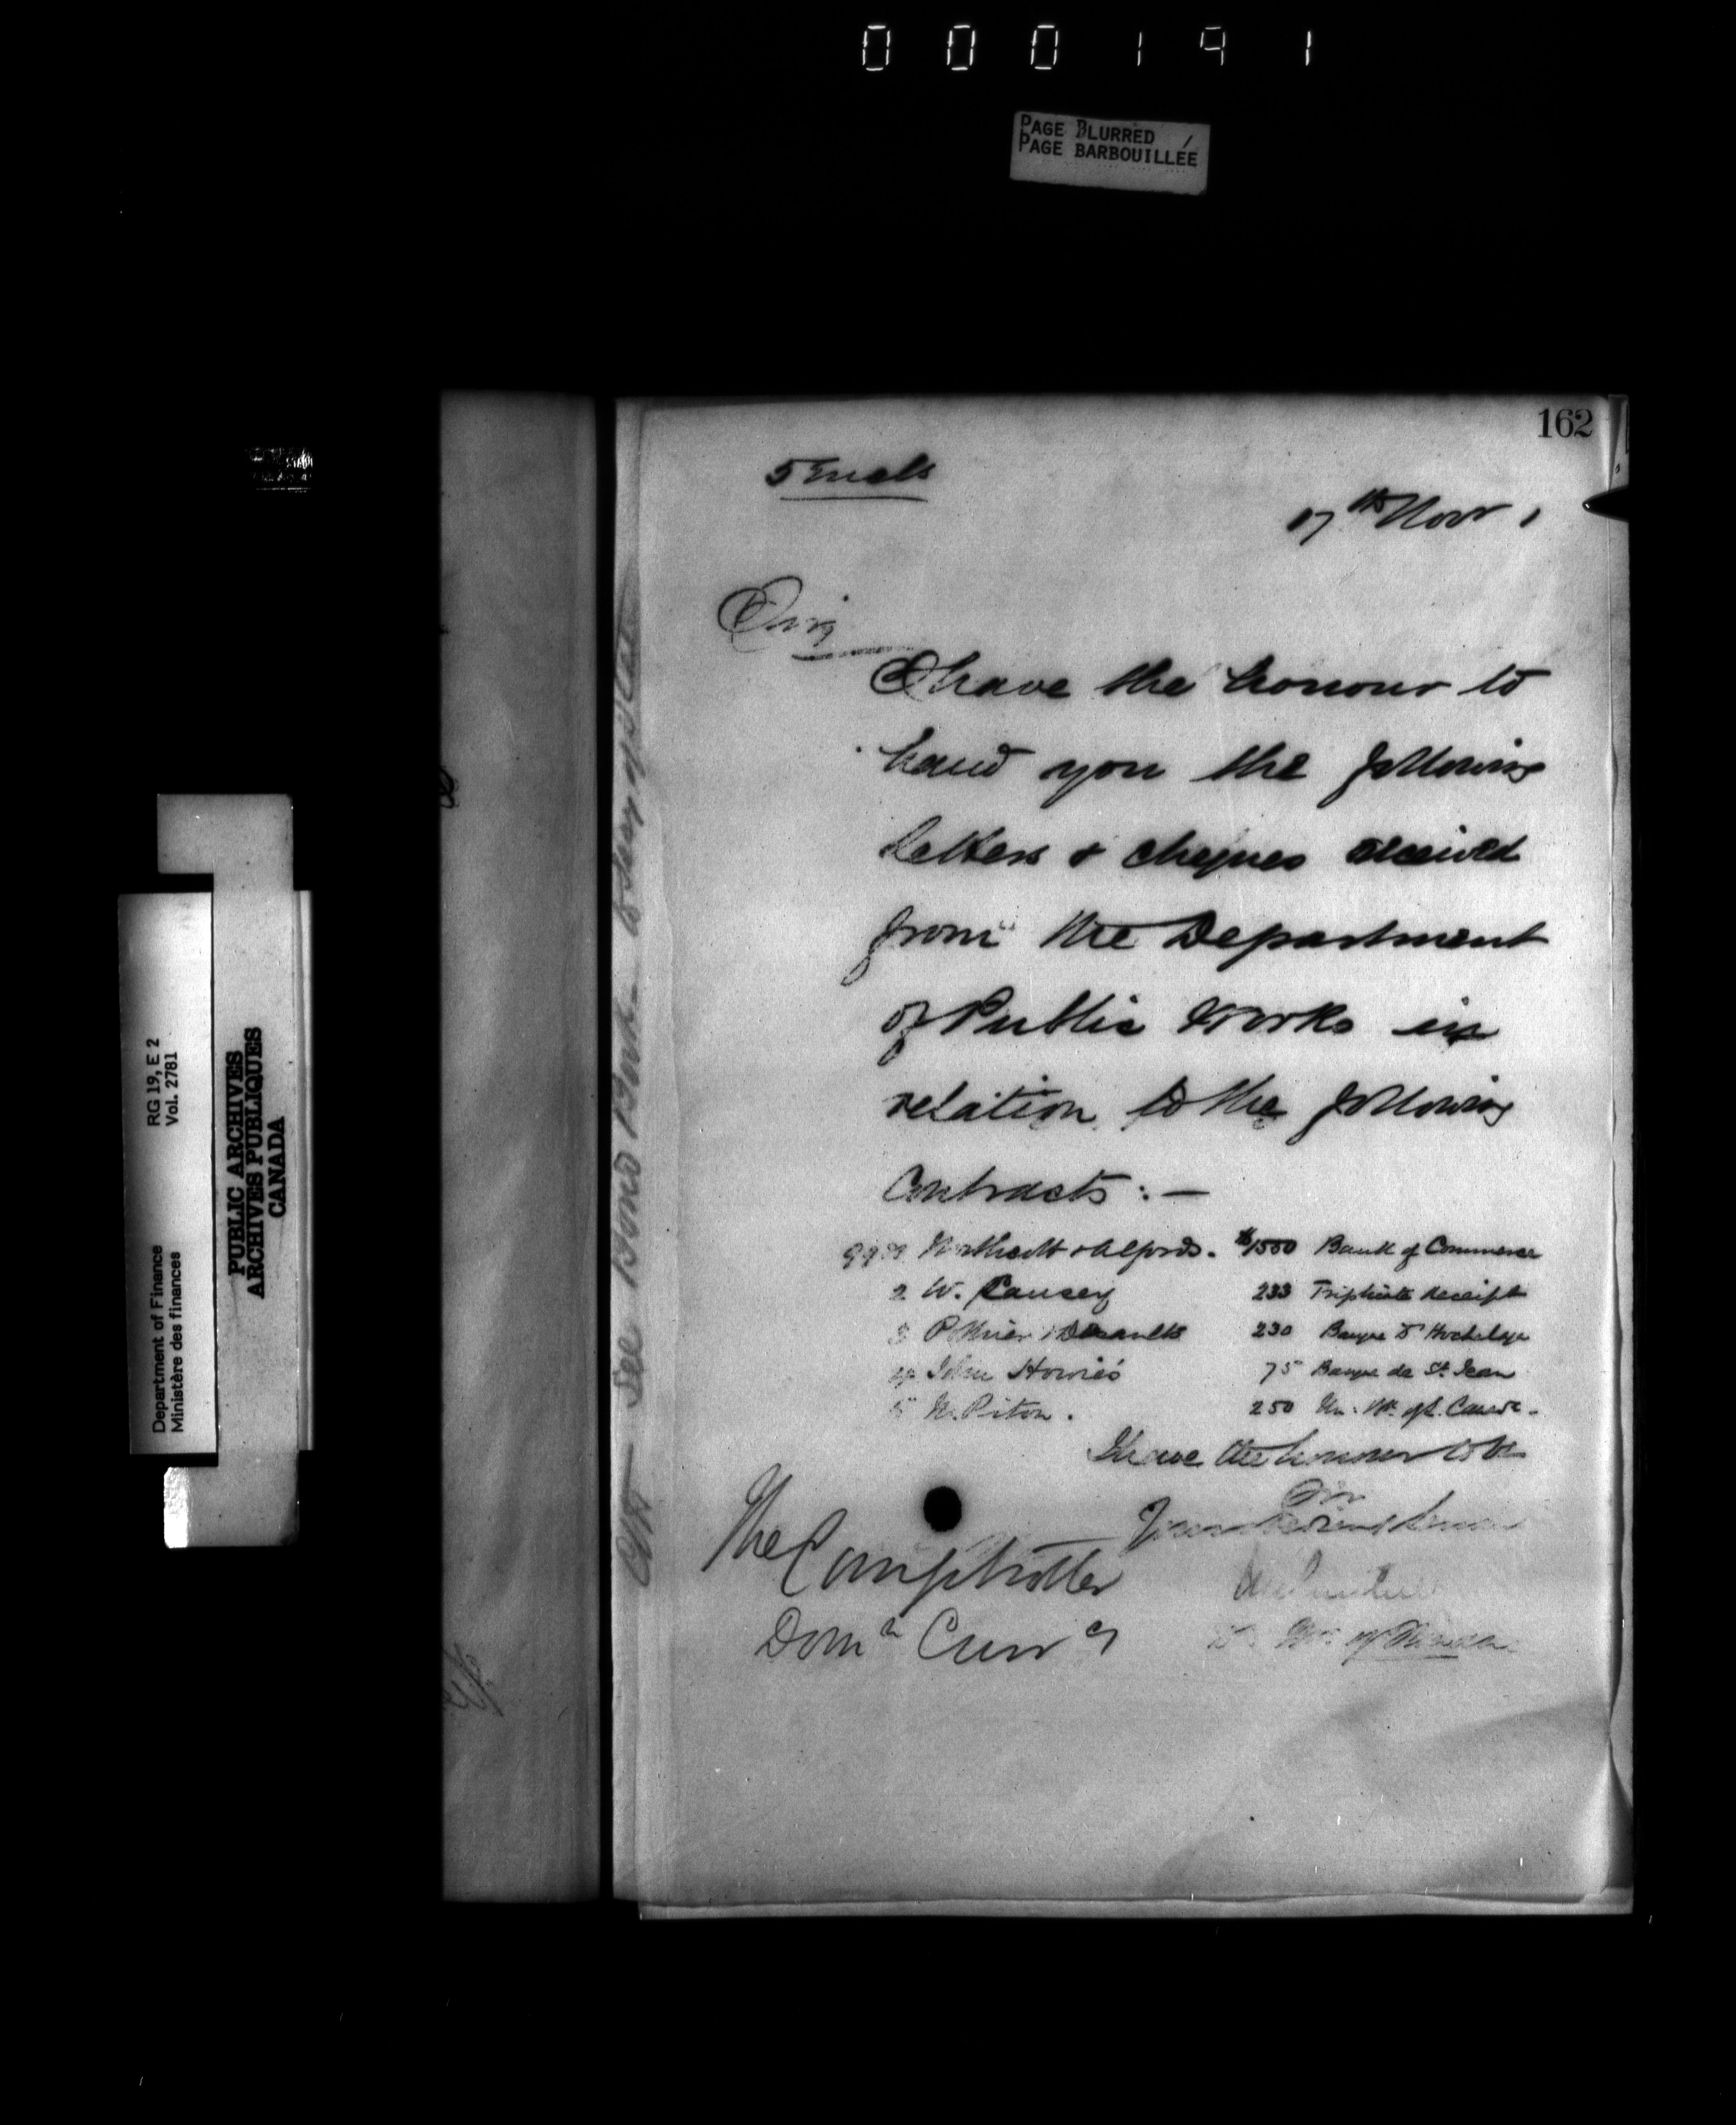 000191
PAGE BLURRED /
PAGE BARBOUILLÉE
162
5 Encls
17th Nov 1
Sir,
I have the honour to
hand you the following
letters & cheques received
from the Department
of Public Works in
relation to the following
Contracts : —
Northcott & Alfords. $1500 Bank of Commerce
2 W. Causey 233 Triplicate Receipt
3 230 Banque d'Hochelaga
4 John Howie's 75 Banque de St. Jean
5 N. Piton. 250
I have the honour to be
Sir
Your obedient servant
The Comptroller
Domn Curr'y
of Finance
See Bond Book
RG 19, E 2
Vol. 2781
Department of Finance
Ministère des finances
PUBLIC ARCHIVES
ARCHIVES PUBLIQUES
CANADA